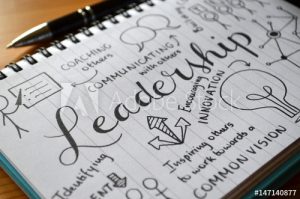 COACHING
others
COMMUNICATING
with others
Leadership
Encouraging
INNOVATION
Identifying
Inspiring others
to work towards a
COMMON VISION
Adobe Stock
147140877